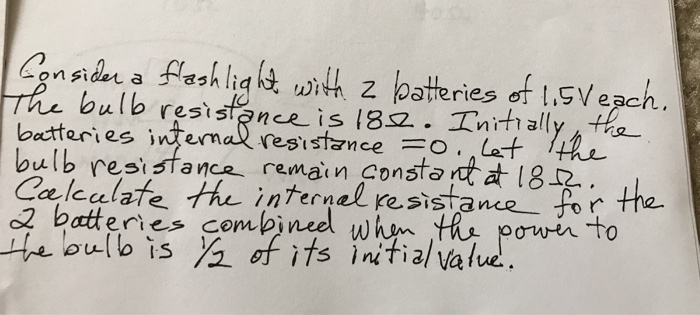 Consider a flashlight with 2 batteries of 1.5V each.
The bulb resistance is 18Ω. Initially, the
batteries internal resistance = 0. Let the
bulb resistance remain constant at 18Ω.
Calculate the internal resistance for the
2 batteries combined when the power to
the bulb is 1/2 of its initial value.